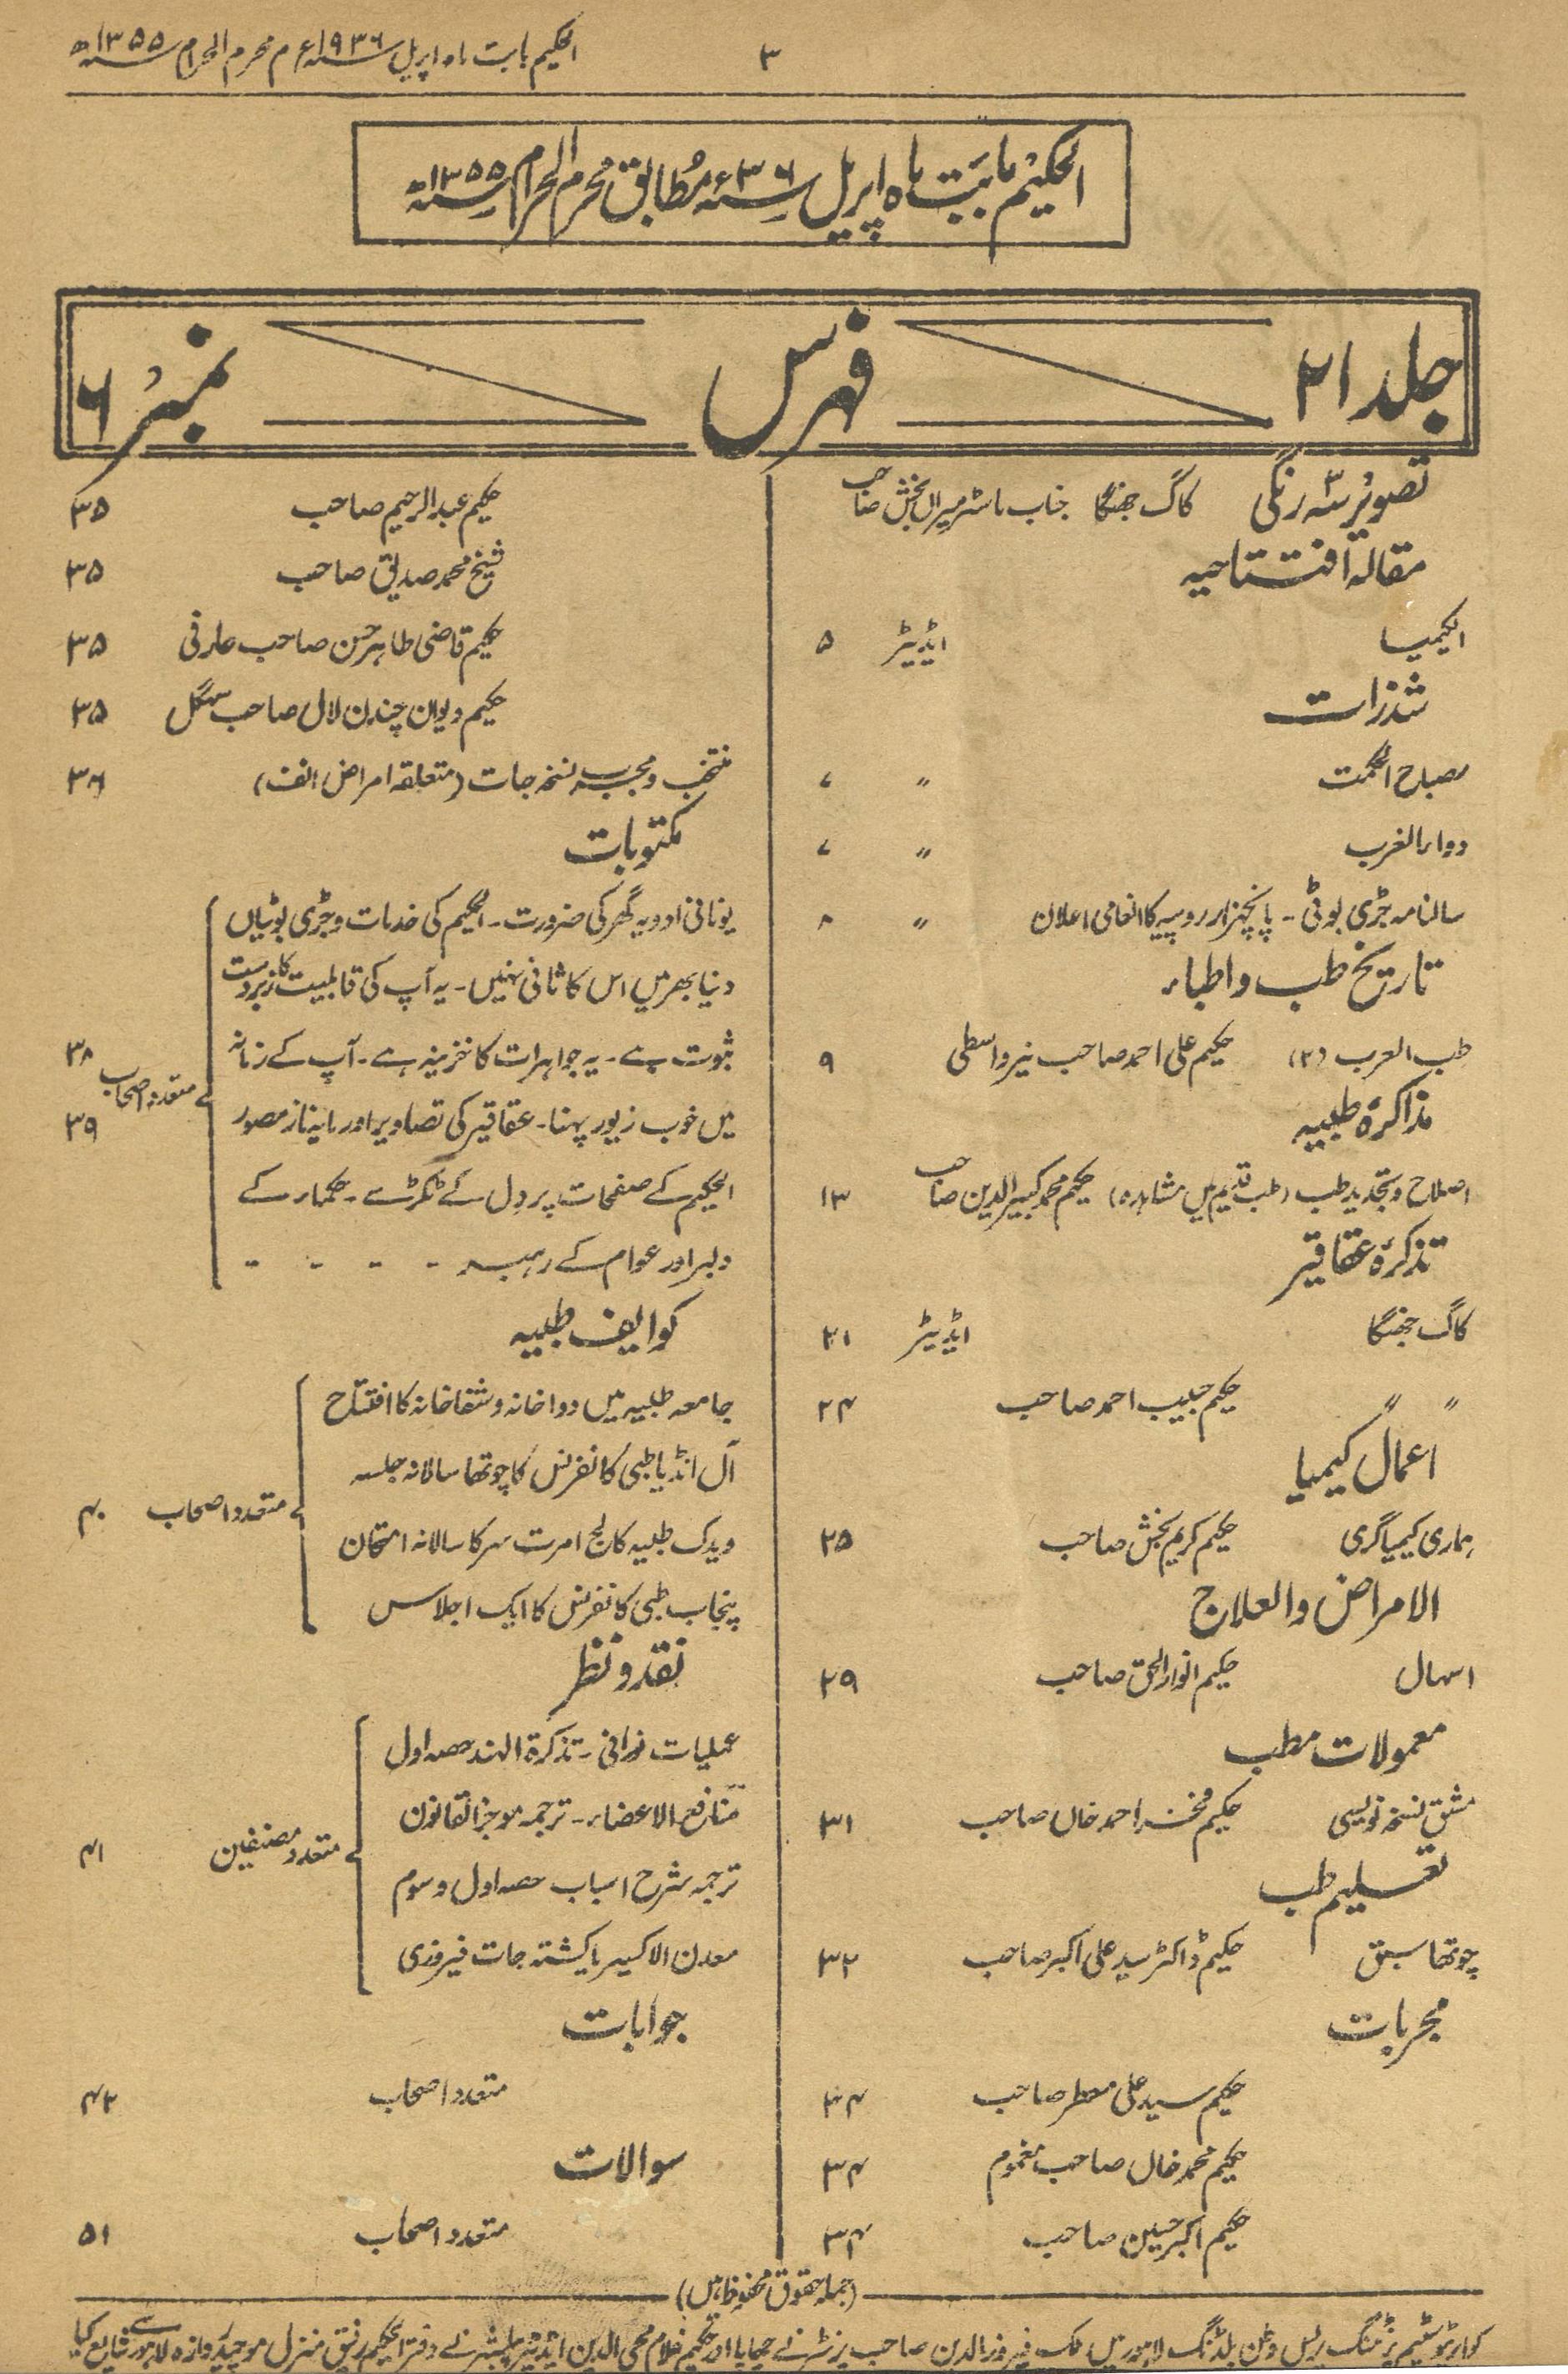 الحکیم بابت ماہ اپریل ۱۹۳۶ء م محرم الحرام ۱۳۵۵ھ
۳
الحکیم بابت ماہ اپریل ۳۶ء مطابق محرم الحرام ۱۳۵۵ھ
جلد ۲۱ فہرس نمبر ۶
تصویر سہ رنگی کاگ جھنگا جناب ماسٹر میراں بخش صاحب
مقالہ افتتاحیہ
الکیمیا ایڈیٹر ۵
شذرات
مصباح الحکمت " ۷
دوار الغرب " ۷
سالنامہ جڑی بوٹی ۔ پانچہزار روپیہ کا انعامی اعلان " ۸
تاریخ طب و اطباء
طب العرب (۲) حکیم علی احمد صاحب نیر واسطی ۹
مذاکرۂ طبیہ
اصلاح و تجدید طب (طب قدیم میں مشاہدہ) حکیم محمد کبیر الدین صاحب ۱۳
تذکرۂ عقاقیر
کاگ جھنگا ایڈیٹر ۲۱
" " حکیم حبیب احمد صاحب ۲۴
اعمال کیمیا
ہماری کیمیاگری حکیم کریم بخش صاحب ۲۵
الامراض والعلاج
اسہال حکیم انوار الحق صاحب ۲۹
معمولات مطب
مشق نسخہ نویسی حکیم احمد خاں صاحب ۳۱
تعلیم طب
چوتھا سبق حکیم ڈاکٹر سید علی اکبر صاحب ۳۲
مجربات
حکیم سید علی معطر صاحب ۳۴
حکیم محمد خاں صاحب مغموم ۳۴
حکیم اکبر حسین صاحب ۳۴
حکیم عبدالرحیم صاحب ۳۵
شیخ محمد صدیق صاحب ۳۵
حکیم قاضی طاہر حسن صاحب عارفی ۳۵
حکیم دیوان چندن لال صاحب سہگل ۳۵
منتخب و مجرب نسخہ جات (متعلقہ امراض انف) ۳۶
مکتوبات
یونانی ادویہ گھر کی ضرورت ۔ الحکیم کی خدمات و جڑی بوٹیاں
دنیا بھر میں اس کا ثانی نہیں ۔ یہ آپ کی قابلیت کا زبردست
ثبوت ہے ۔ یہ جواہرات کا خزینہ ہے ۔ آپ کے زمانہ
میں خوب زیور پہنا ۔ عقاقیر کی تصاویر اور مایہ ناز مصور
الحکیم کے صفحات پر دل کے ٹکڑے ۔ حکماء کے
دلبر اور عوام کے رہبر - - - -
متعدد اصحاب ۳۸
۳۹
کوایف طبیہ
جامعہ طبیہ میں دواخانہ و شفاخانہ کا افتتاح
آل انڈیا طبی کانفرنس کا چوتھا سالانہ جلسہ
ویدک طبیہ کالج امرت سر کا سالانہ امتحان
پنجاب طبی کانفرنس کا ایک اجلاس
متعدد اصحاب ۴۰
نقد و نظر
عملیات نورانی ۔ تذکرۃ الہند حصہ اول
منافع الاعضاء ۔ ترجمہ موجز القانون
ترجمہ شرح اسباب حصہ اول و سوم
معدن الاکسیر یا کشتہ جات فیروزی
متعدد مصنفین ۴۱
جوابات
متعدد اصحاب ۴۲
سوالات
متعدد اصحاب ۵۱
(جملہ حقوق محفوظ ہیں)
کوآپریٹو سٹیم پرنٹنگ پریس وطن بلڈنگ لاہور میں ملک فیروز الدین صاحب پرنٹر نے چھاپا اور حکیم غلام محی الدین ایڈیٹر پبلشر نے دفتر الحکیم رفیق منزل موچیدروازہ لاہور سے شایع کیا